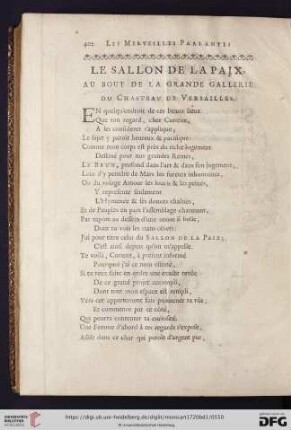 402 LES MERVEILLES PARLANTES
LE SALLON DE LA PAIX.
AU BOUT DE LA GRANDE GALLERIE
DU CHASTEAU DE VERSAILLES.
EN quelqu'endroit de ces beaux lieux
Que ton regard, cher Curieux,
A les considerer s'applique;
Le sujet y paroît heureux & pacifique
Comme mon corps est près du riche logement
Destiné pour nos grandes Reines,
LE BRUN, profond dans l'art & dans son jugement,
Loin d'y peindre de Mars les fureurs inhumaines,
Ou du volage Amour les soucis & les peines,
Y represente seulement
L'Hymenée & ses douces chaînes,
Et de Peuples en paix l'assemblage charmant,
Par rapport au dessein d'une union si belle,
Dont tu vois les traits offerts:
J'ai pour titre celui du SALLON DE LA PAIX;
C'est ainsi depuis qu'on m'appelle.
Te voilà, Curieux, à present informé
Pourquoi j'ai ce nom estimé,
Si tu veux faire en ordre une étude
De ce grand projet accompli,
Dont tout mon espace est rempli,
Vers cet appartement fais promener ta vûe,
Et commence par ce côté,
Qui pourra contenter ta curiosité.
Une Femme d'abord à tes regards s'expose,
Assise dans ce char qui paroît d'argent pur,
https://digi.ub.uni-heidelberg.de/diglit/monicart1720bd1/0550
© Universitätsbibliothek Heidelberg
UNIVERSITÄTS-
BIBLIOTHEK
HEIDELBERG
gefördert durch die
DFG